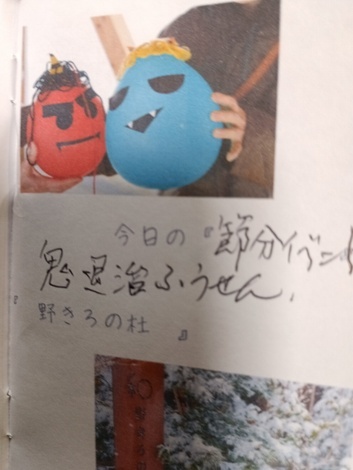 今日の『節分イベント
鬼退治ふうせん、
『野きろの杜』